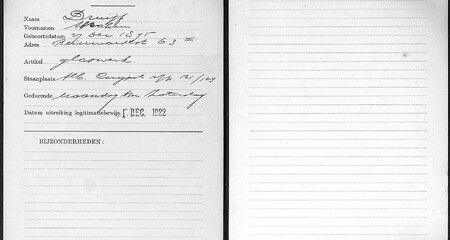 Naam Druijf
Voornamen Abraham
Geboortedatum 7 Dec 1875
Adres 63 III
Artikel glaswerk
Staanplaats Alb. Cuypst
Gedurende Maandag t/m Zaterdag
Datum uitreiking legitimatiebewijs DEC. 1922
BIJZONDERHEDEN: